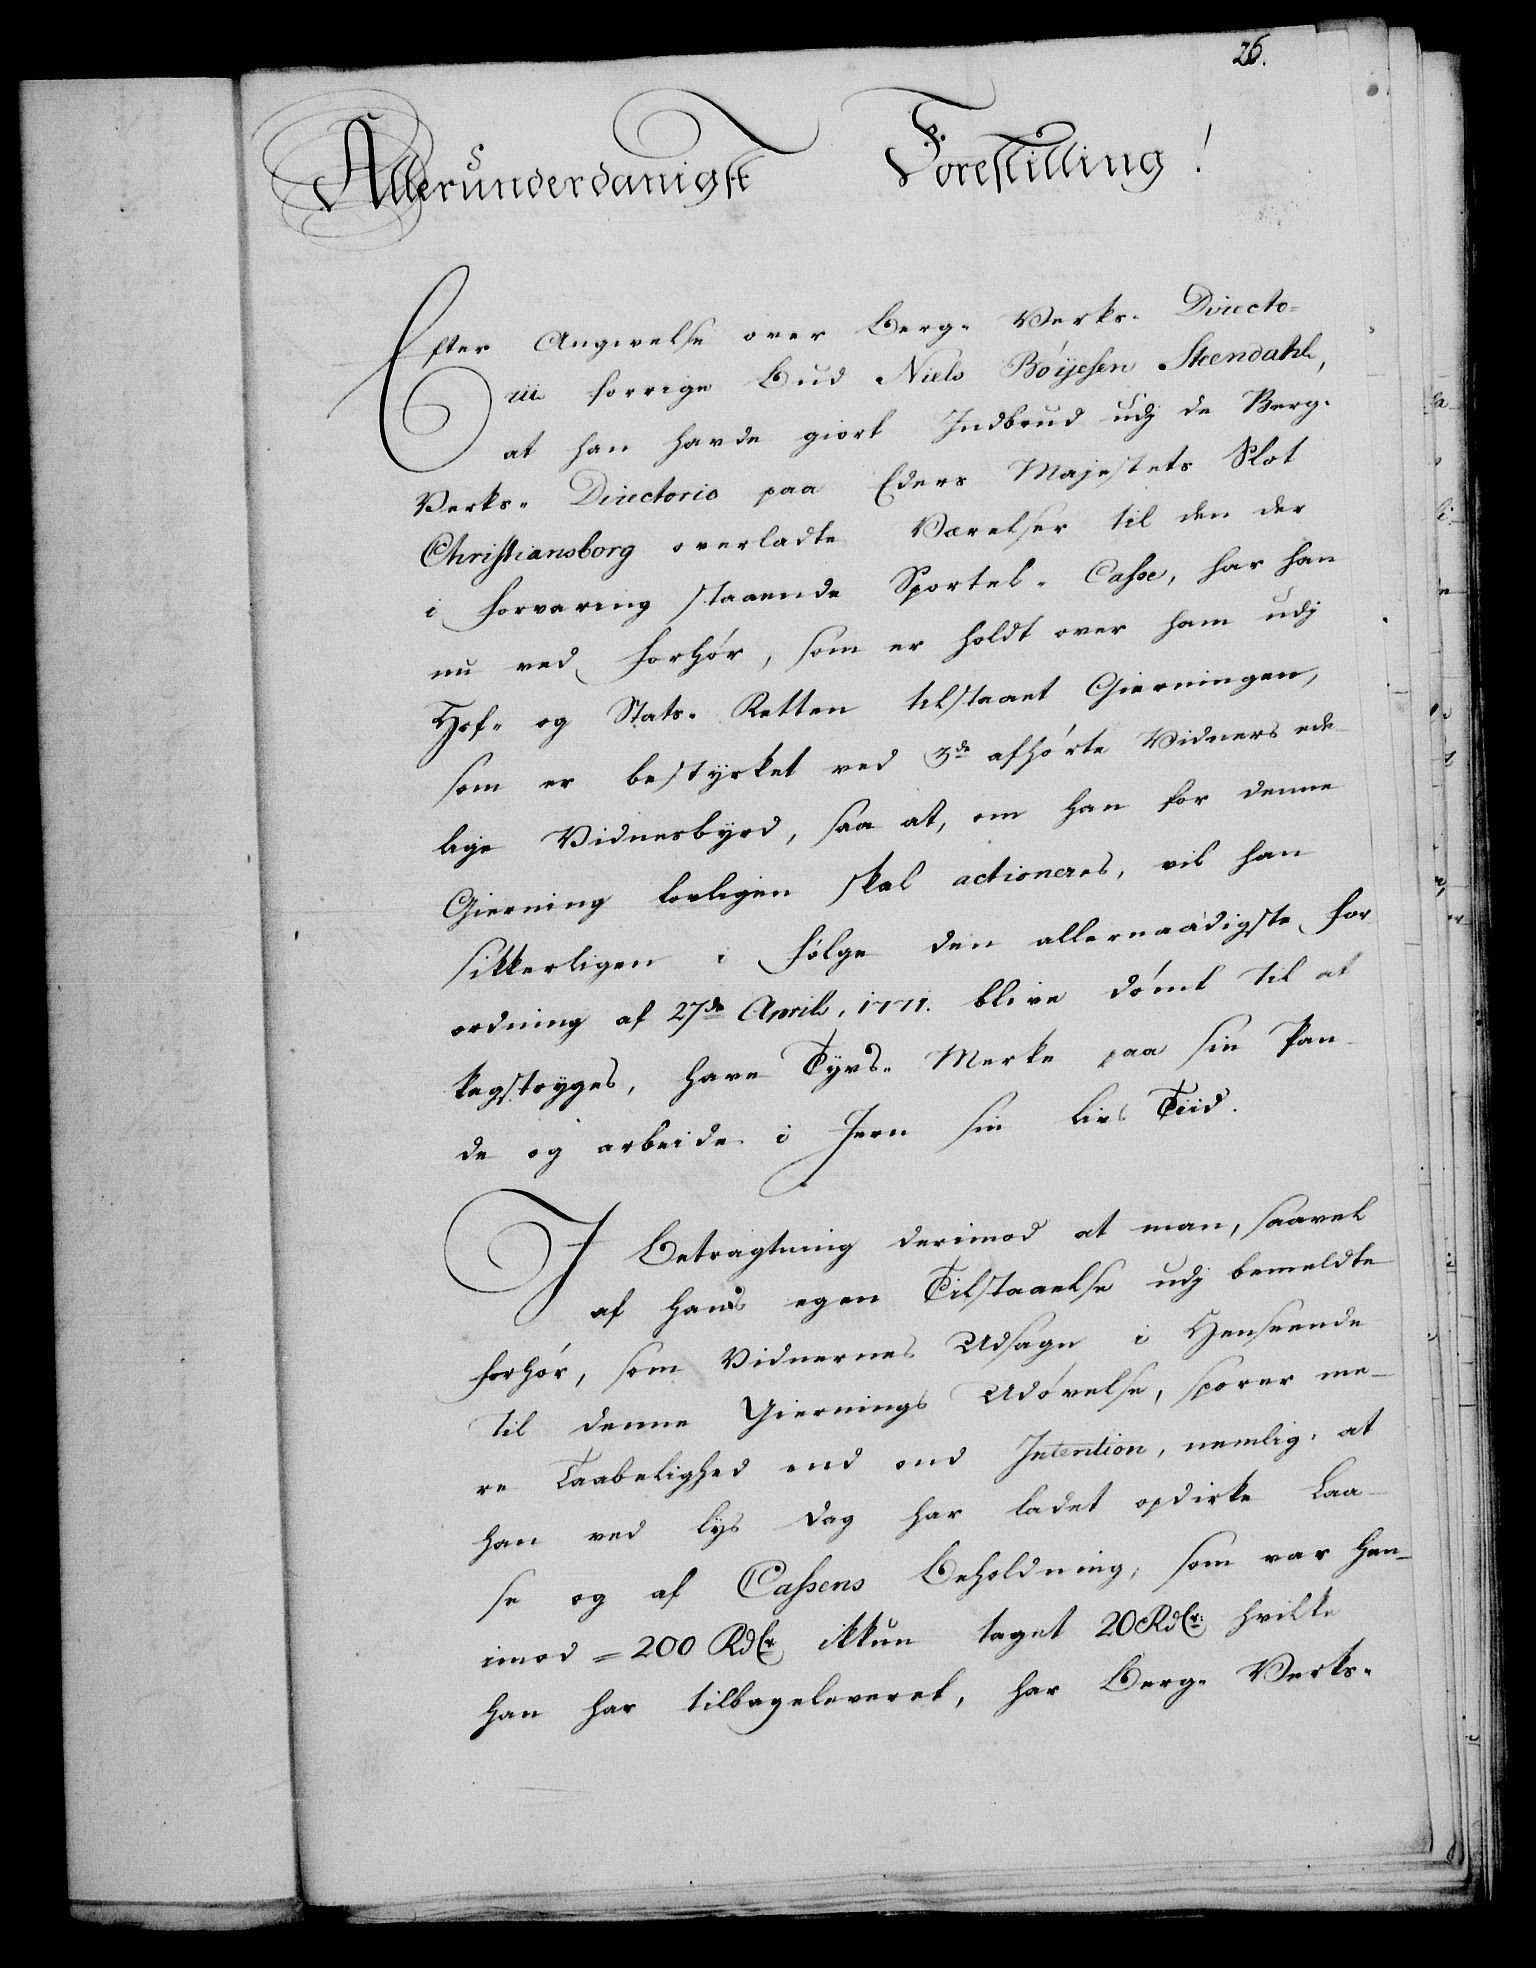 26.
Allerunderdanigst Forestilling!
Efter Angivelse over Berg- Verks- Directo-
rii forrige Bud Niels Böÿesen Steendahl,
at han havde giort Indbrud udj de Berg-
Verks- Directorio paa Eders Majestets Slot
Christiansborg overladte Værelser til den der
i forvaring staaende Sportel- Casse, har han
nu ved forhör, som er holdt over ham udj
Hof- og Stats- Retten tilstaaet Gierningen,
som er bestÿrket ved 3de afhörte Vidners ede-
lige Vidnesbyrd, saa at, om han for denne
Gierning lovligen skal actioneres, vil han
sikkerligen i fölge den allernaadigste for-
ordning af 27de April, 1771. blive dömt til at
kagstryges, have Tÿvs- Merke paa sin Pan-
de og arbeide i Jern sin Livs Tiid.
I Betragtning derimod at man, saavel
af hans egen Tilstaaelse udj bemeldte
forhör, som Vidnernes Udsagn i Henseende
til denne Giernings Udövelse, sporer me-
re Taabelighed end ond Intention, nemlig: at
han ved lys Dag har ladet opdirke Laa-
se og af Cassens Beholdning, som var hen-
imod = 200 Rdlr ikkun taget 20 Rdlr: hvilke
han har tilbageleveret, har Berg- Verks-